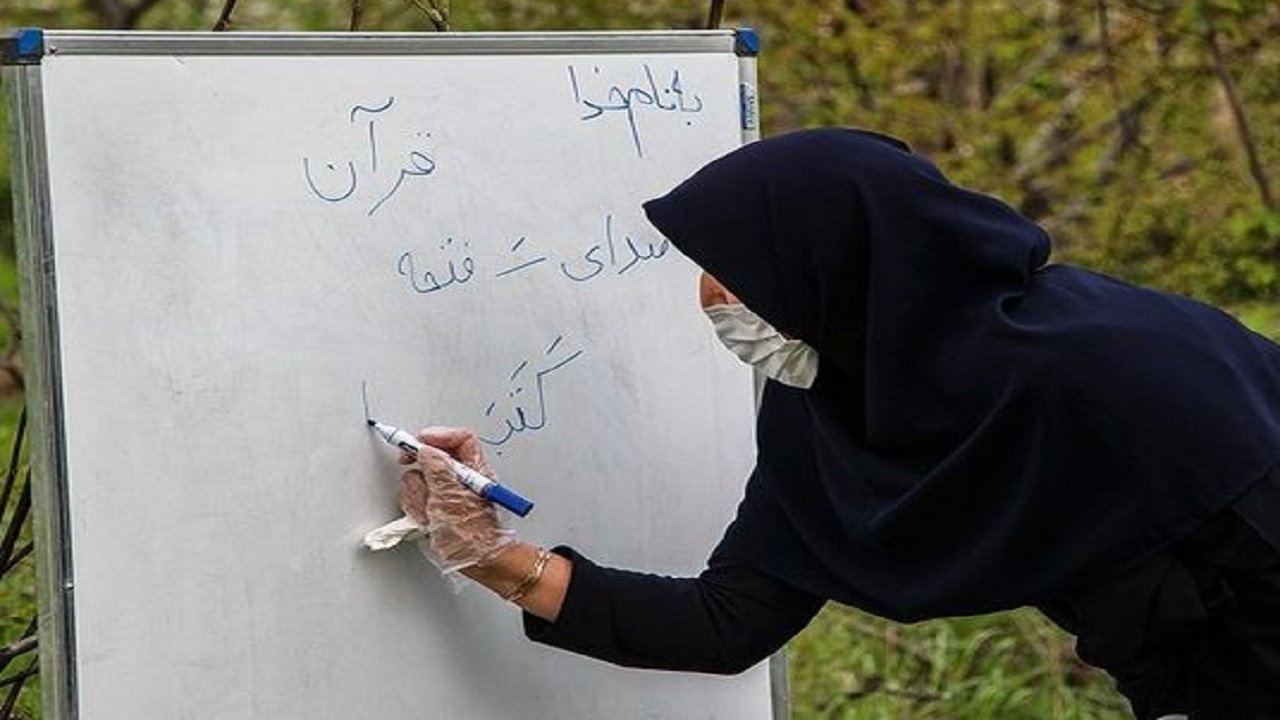 به نام خدا
قرآن
صدای ــَـ فتحه
کَتَبَ